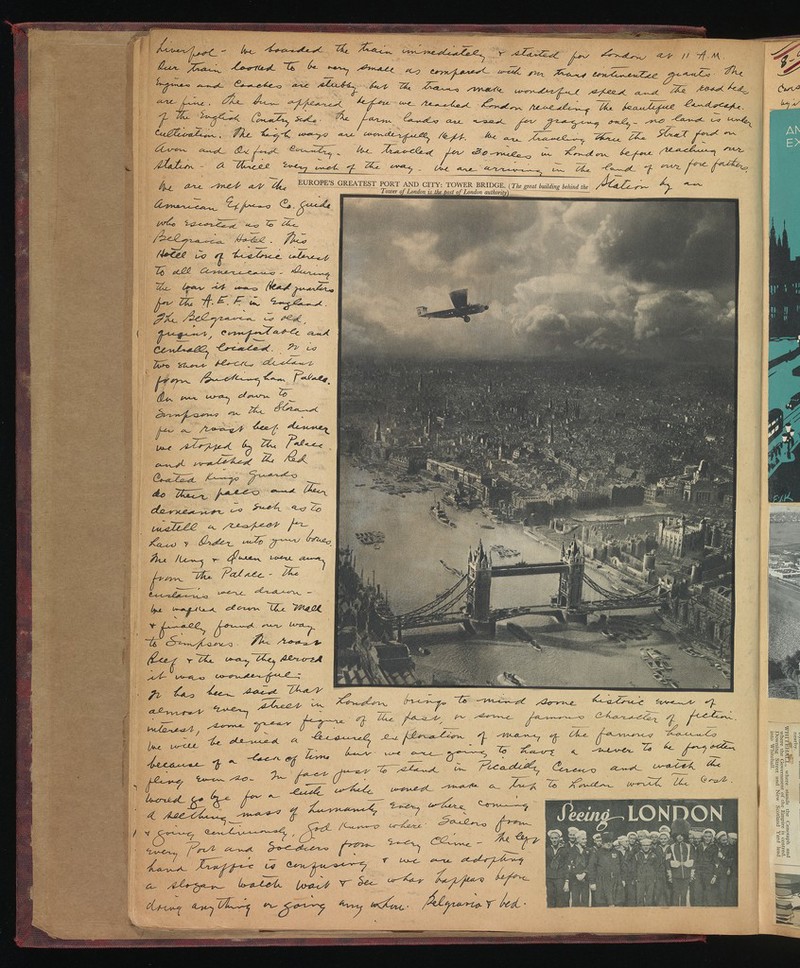 Liverpool - We boarded the train immediately & started for London at 11 A.M.
Our train looked to be very small as compared with our trans continental giants The
Engines and Coaches are stubby but the trains make wonderful speed and the road beds
are fine. The Sun appeared before we reached London revealing the beautiful landscape
of the English Country Side. The farm lands are used for grazing only - no land is under
Cultivation. The high ways are wonderfully kept. We are traveling thru the Strat ford on
Avon and Oxford Country - We traveled for 30 miles in London before reaching our
Station - A thrill every inch of the way. We are arriving in the land of our fore fathers.
We are met at the Station by an
EUROPE'S GREATEST PORT AND CITY: TOWER BRIDGE. (The great building behind the
Tower of London is the post of London authority)
American Express Co. guide
who escorted us to the
Belgravia Hotel. This
Hotel is of historic interest
to all Americans - During
the war it was Head quarters
for the A.E.F. in England.
The Belgravia is old,
comfortable and
centrally located. It is
two short blocks distant
from Buckingham Palace.
On our way down to
Simpsons on the Strand
for a roast beef dinner
we stopped by the Palace
and watched the Red
Coated Kings Guards
do their paces and their
demeanor is such as to
instill a respect for
Law & Order into your bones.
The King & Queen were away
from the Palace - The
curtains were drawn -
We walked down the Mall
& finally found our way
to Simpsons. The roast
Beef & the way they served
it was wonderful.
It has been said that
almost every street in London brings to mind some historic event of
interest, some great figure of the past, or some famous character of fiction.
We will be denied a leisurely exploration of many of the famous haunts
because of a lack of time but we are going to have a never to be forgotten
fling even so. In fact just to stand in Picadilly Circus and watch the
world go bye for a little while would make a trip to London worth the cost.
A seething mass of humanity every where coming
& going continuously. God knows where Sailors from
every Port and Soldiers from every Clime - The left
hand traffic is confusing & we are adopting
a slogan watch wait & see what happens before
doing anything or going any where. Belgravia & bed.
Seeing LONDON
AN
EX